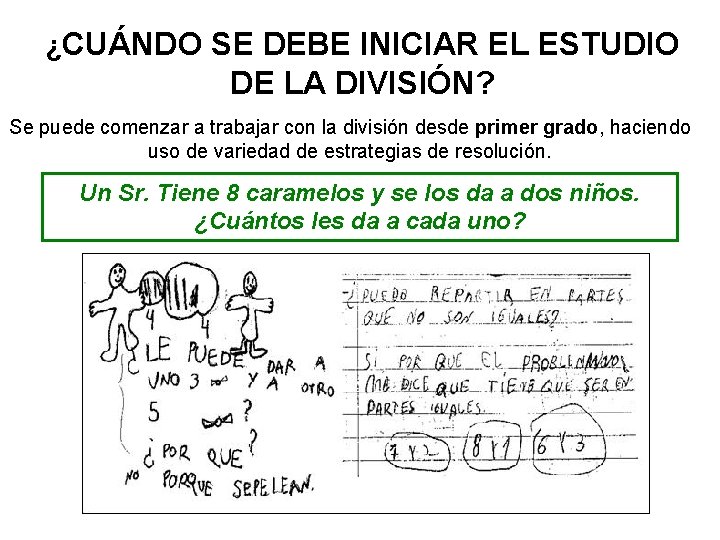 ¿CUÁNDO SE DEBE INICIAR EL ESTUDIO
DE LA DIVISIÓN?
Se puede comenzar a trabajar con la división desde primer grado, haciendo
uso de variedad de estrategias de resolución.
Un Sr. Tiene 8 caramelos y se los da a dos niños.
¿Cuántos les da a cada uno?
4
4
¿ LE PUEDE DAR A
UNO 3 Y A OTRO
5 ?
¿ POR QUE ?
NO PORQUE SEPELEAN.
¿PUEDO REPARTIR EN PARTES
QUE NO SON IGUALES?
SI POR QUE EL PROBLEMA NO
ME DICE QUE TIENE QUE SER EN
PARTES IGUALES.
7 Y 2 8 Y 1 6 Y 3